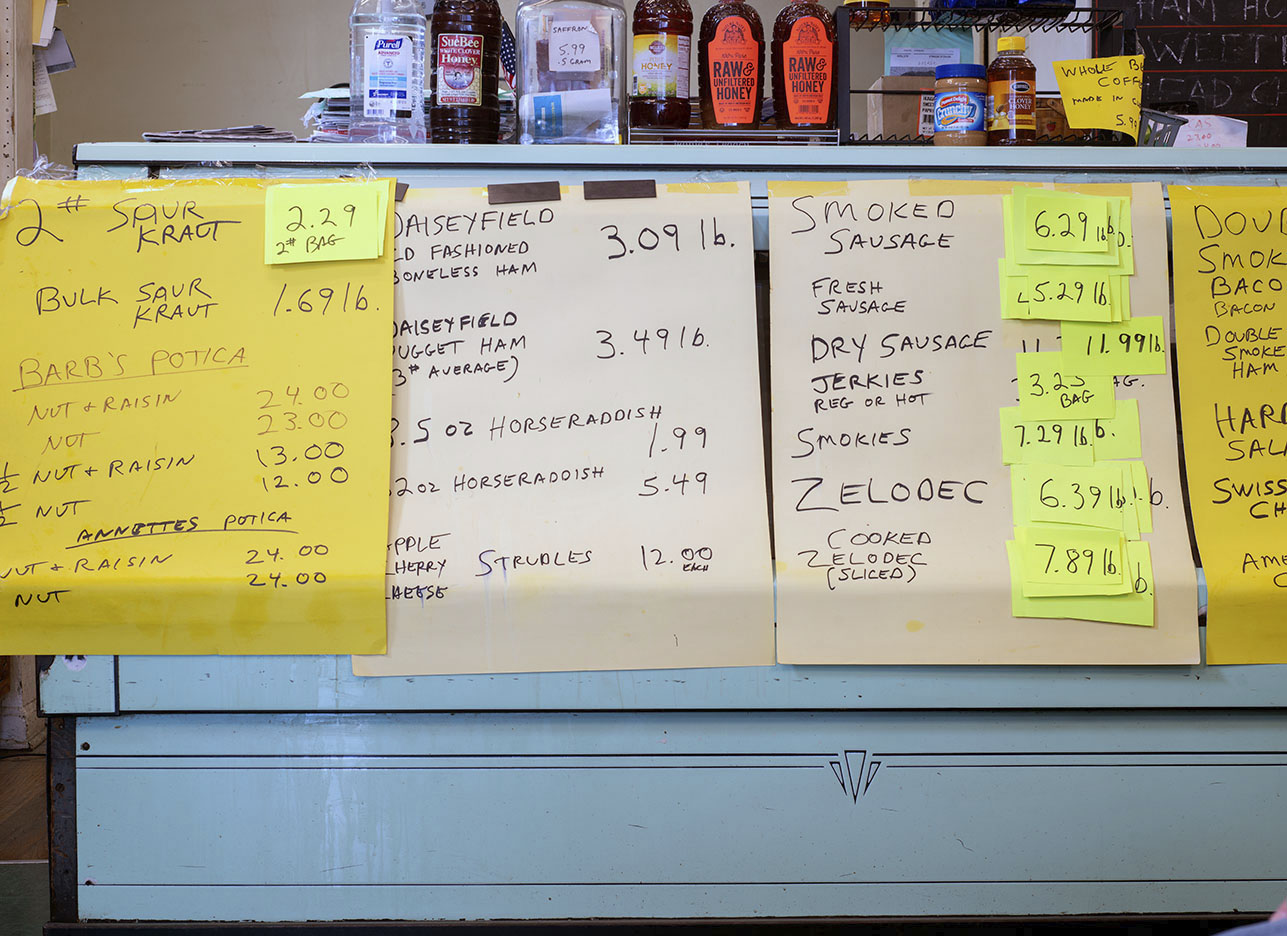 Purell
ADVANCED
SueBee
WHITE CLOVER
Honey
SAFFRON
5.99
.5 GRAM
HONEY
RAW &
UNFILTERED
HONEY
RAW &
UNFILTERED
HONEY
Crunchy
CLOVER
HONEY
WHOLE
COFF
MADE IN
5.9
HAM
SWEET
EAD
2# SAUR
KRAUT
2.29
2# BAG
BULK SAUR
KRAUT
1.69 lb.
BARB'S POTICA
NUT + RAISIN 24.00
NUT 23.00
1/2 NUT + RAISIN 13.00
1/2 NUT 12.00
ANNETTES POTICA
NUT + RAISIN 24.00
NUT 24.00
DAISEYFIELD
LD FASHIONED
BONELESS HAM
3.09 lb.
DAISEYFIELD
NUGGET HAM
3# AVERAGE)
3.49 lb.
8.5 OZ HORSERADDISH
1.99
32 OZ HORSERADDISH
5.49
PPLE
HERRY
HEESE
STRUDLES
12.00
EACH
SMOKED
SAUSAGE
6.29 lb.
FRESH
SAUSAGE
5.29 lb.
DRY SAUSAGE 11.99 lb.
JERKIES
REG OR HOT
3.25
BAG
SMOKIES 7.29 lb.
ZELODEC 6.39 lb.
COOKED
ZELODEC
(SLICED)
7.89 lb.
DOUB
SMOK
BACO
BACON
DOUBLE
SMOKE
HAM
HARD
SAL
SWISS
CH
AME
C